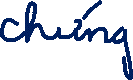 chúng